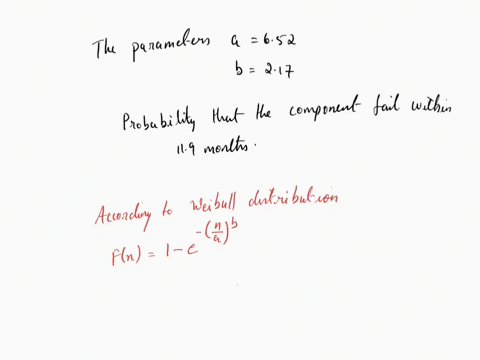 The parameters a = 6.52
b = 2.17
Probability that the component fail within
11.9 months.
According to Weibull distribution
F(x) = 1 - e^{-(x/a)^b}